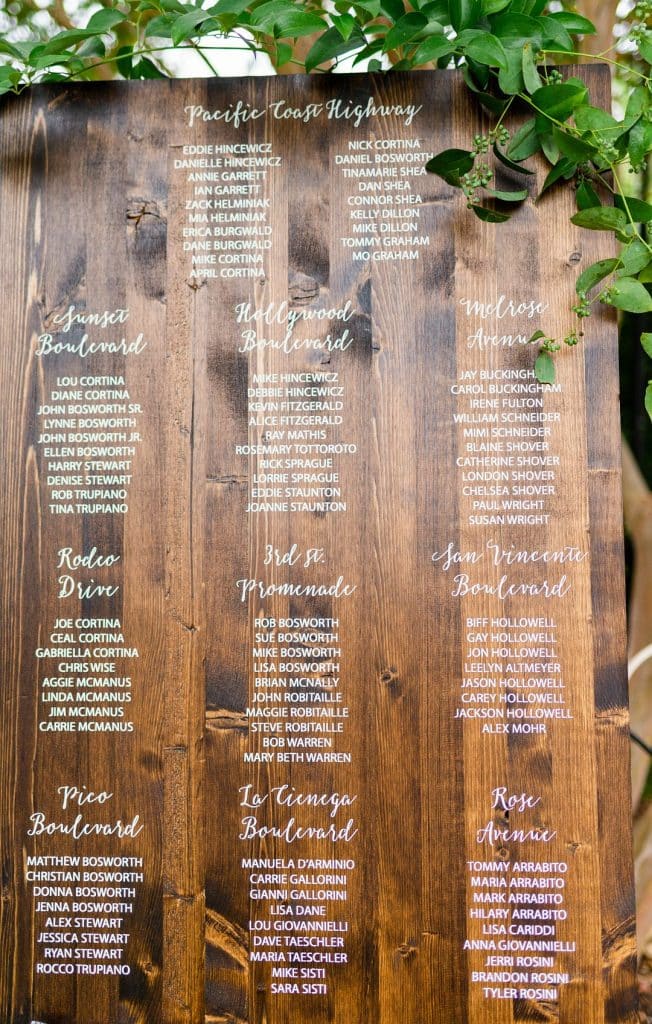 Pacific Coast Highway
EDDIE HINCEWICZ
DANIELLE HINCEWICZ
ANNIE GARRETT
IAN GARRETT
ZACK HELMINIAK
MIA HELMINIAK
ERICA BURGWALD
DANE BURGWALD
MIKE CORTINA
APRIL CORTINA
NICK CORTINA
DANIEL BOSWORTH
TINAMARIE SHEA
DAN SHEA
CONNOR SHEA
KELLY DILLON
MIKE DILLON
TOMMY GRAHAM
MO GRAHAM
Sunset
Boulevard
LOU CORTINA
DIANE CORTINA
JOHN BOSWORTH SR.
LYNNE BOSWORTH
JOHN BOSWORTH JR.
ELLEN BOSWORTH
HARRY STEWART
DENISE STEWART
ROB TRUPIANO
TINA TRUPIANO
Hollywood
Boulevard
MIKE HINCEWICZ
DEBBIE HINCEWICZ
KEVIN FITZGERALD
ALICE FITZGERALD
RAY MATHIS
ROSEMARY TOTTOROTO
RICK SPRAGUE
LORRIE SPRAGUE
EDDIE STAUNTON
JOANNE STAUNTON
Melrose
Avenue
JAY BUCKINGHAM
CAROL BUCKINGHAM
IRENE FULTON
WILLIAM SCHNEIDER
MIMI SCHNEIDER
BLAINE SHOVER
CATHERINE SHOVER
LONDON SHOVER
CHELSEA SHOVER
PAUL WRIGHT
SUSAN WRIGHT
Rodeo
Drive
JOE CORTINA
CEAL CORTINA
GABRIELLA CORTINA
CHRIS WISE
AGGIE MCMANUS
LINDA MCMANUS
JIM MCMANUS
CARRIE MCMANUS
3rd st.
Promenade
ROB BOSWORTH
SUE BOSWORTH
MIKE BOSWORTH
LISA BOSWORTH
BRIAN MCNALLY
JOHN ROBITAILLE
MAGGIE ROBITAILLE
STEVE ROBITAILLE
BOB WARREN
MARY BETH WARREN
San Vincente
Boulevard
BIFF HOLLOWELL
GAY HOLLOWELL
JON HOLLOWELL
LEELYN ALTMEYER
JASON HOLLOWELL
CAREY HOLLOWELL
JACKSON HOLLOWELL
ALEX MOHR
Pico
Boulevard
MATTHEW BOSWORTH
CHRISTIAN BOSWORTH
DONNA BOSWORTH
JENNA BOSWORTH
ALEX STEWART
JESSICA STEWART
RYAN STEWART
ROCCO TRUPIANO
La Cienega
Boulevard
MANUELA D'ARMINIO
CARRIE GALLORINI
GIANNI GALLORINI
LISA DANE
LOU GIOVANNIELLI
DAVE TAESCHLER
MARIA TAESCHLER
MIKE SISTI
SARA SISTI
Rose
Avenue
TOMMY ARRABITO
MARIA ARRABITO
MARK ARRABITO
HILARY ARRABITO
LISA CARIDDI
ANNA GIOVANNIELLI
JERRI ROSINI
BRANDON ROSINI
TYLER ROSINI